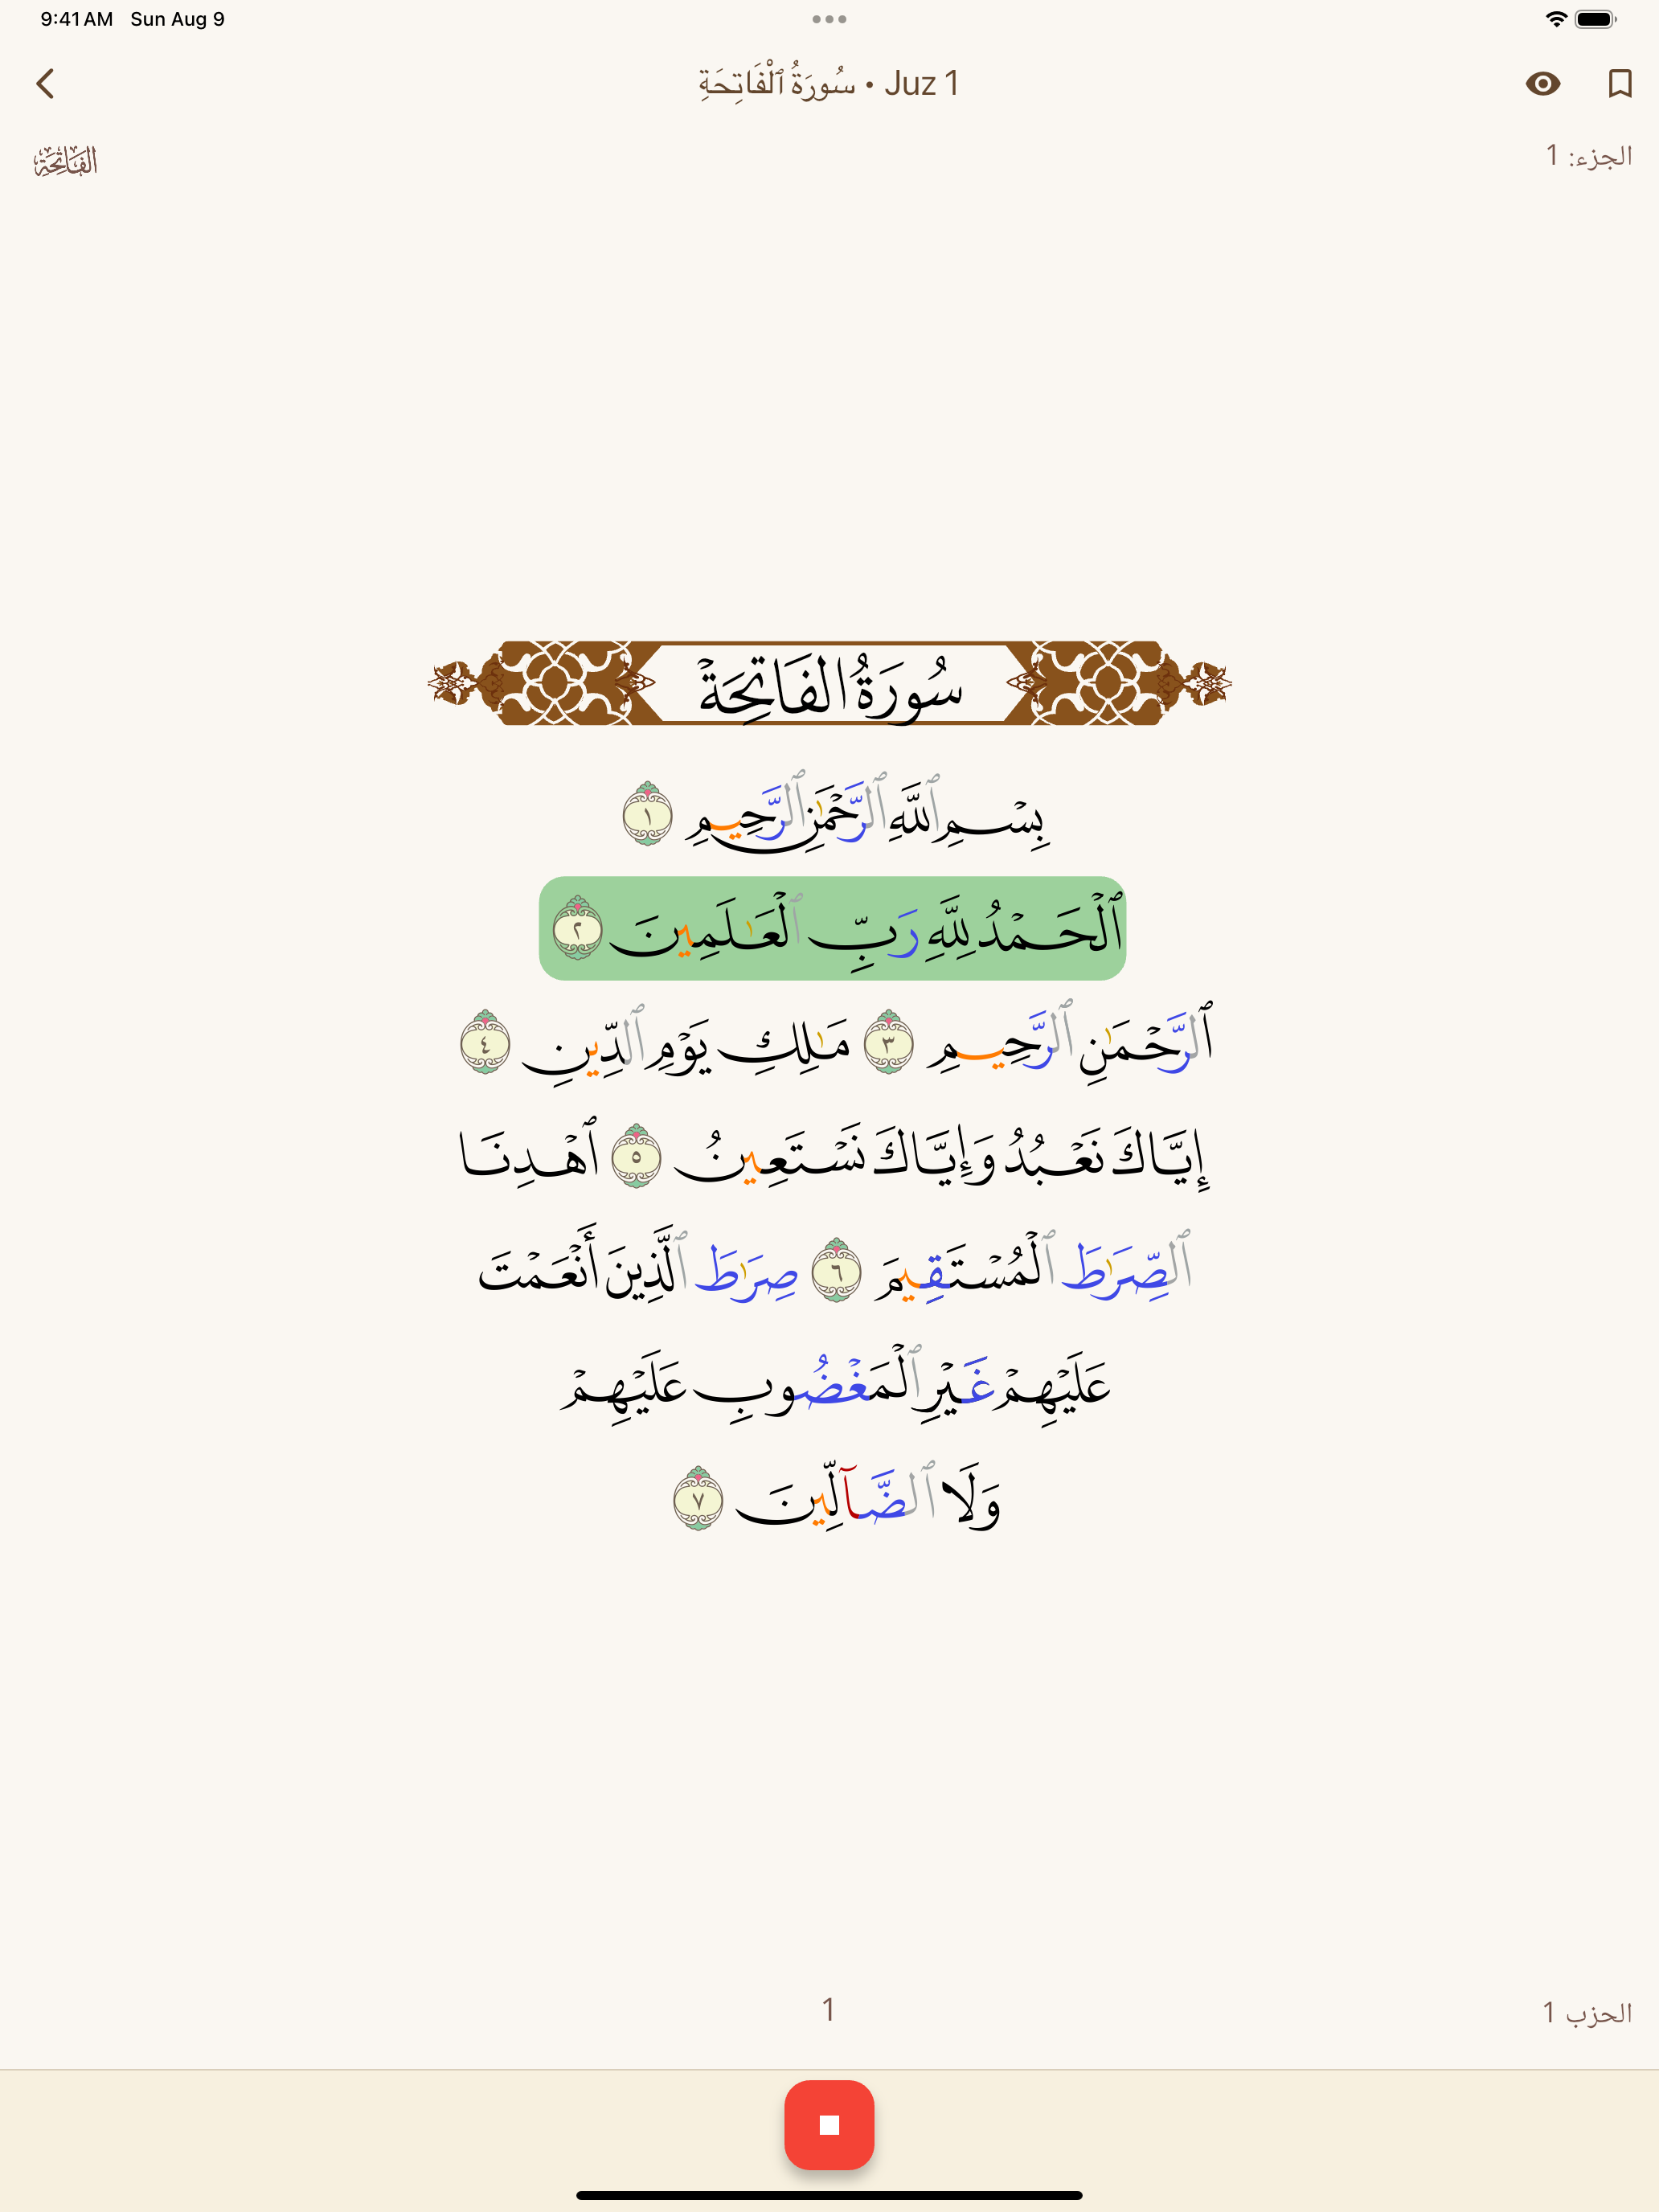 9:41 AM Sun Aug 9
سُورَةُ ٱلْفَاتِحَةِ • Juz 1
الجزء: 1
الفَاتِحَة
سُورَةُ الفَاتِحَةْ
بِسْمِ ٱللَّهِ ٱلرَّحْمَٰنِ ٱلرَّحِيمِ ١
ٱلْحَمْدُ لِلَّهِ رَبِّ ٱلْعَٰلَمِينَ ٢
ٱلرَّحْمَٰنِ ٱلرَّحِيمِ ٣ مَٰلِكِ يَوْمِ ٱلدِّينِ ٤
إِيَّاكَ نَعْبُدُ وَإِيَّاكَ نَسْتَعِينُ ٥ ٱهْدِنَا
ٱلصِّرَٰطَ ٱلْمُسْتَقِيمَ ٦ صِرَٰطَ ٱلَّذِينَ أَنْعَمْتَ
عَلَيْهِمْ غَيْرِ ٱلْمَغْضُوبِ عَلَيْهِمْ
وَلَا ٱلضَّآلِّينَ ٧
1
الحزب 1